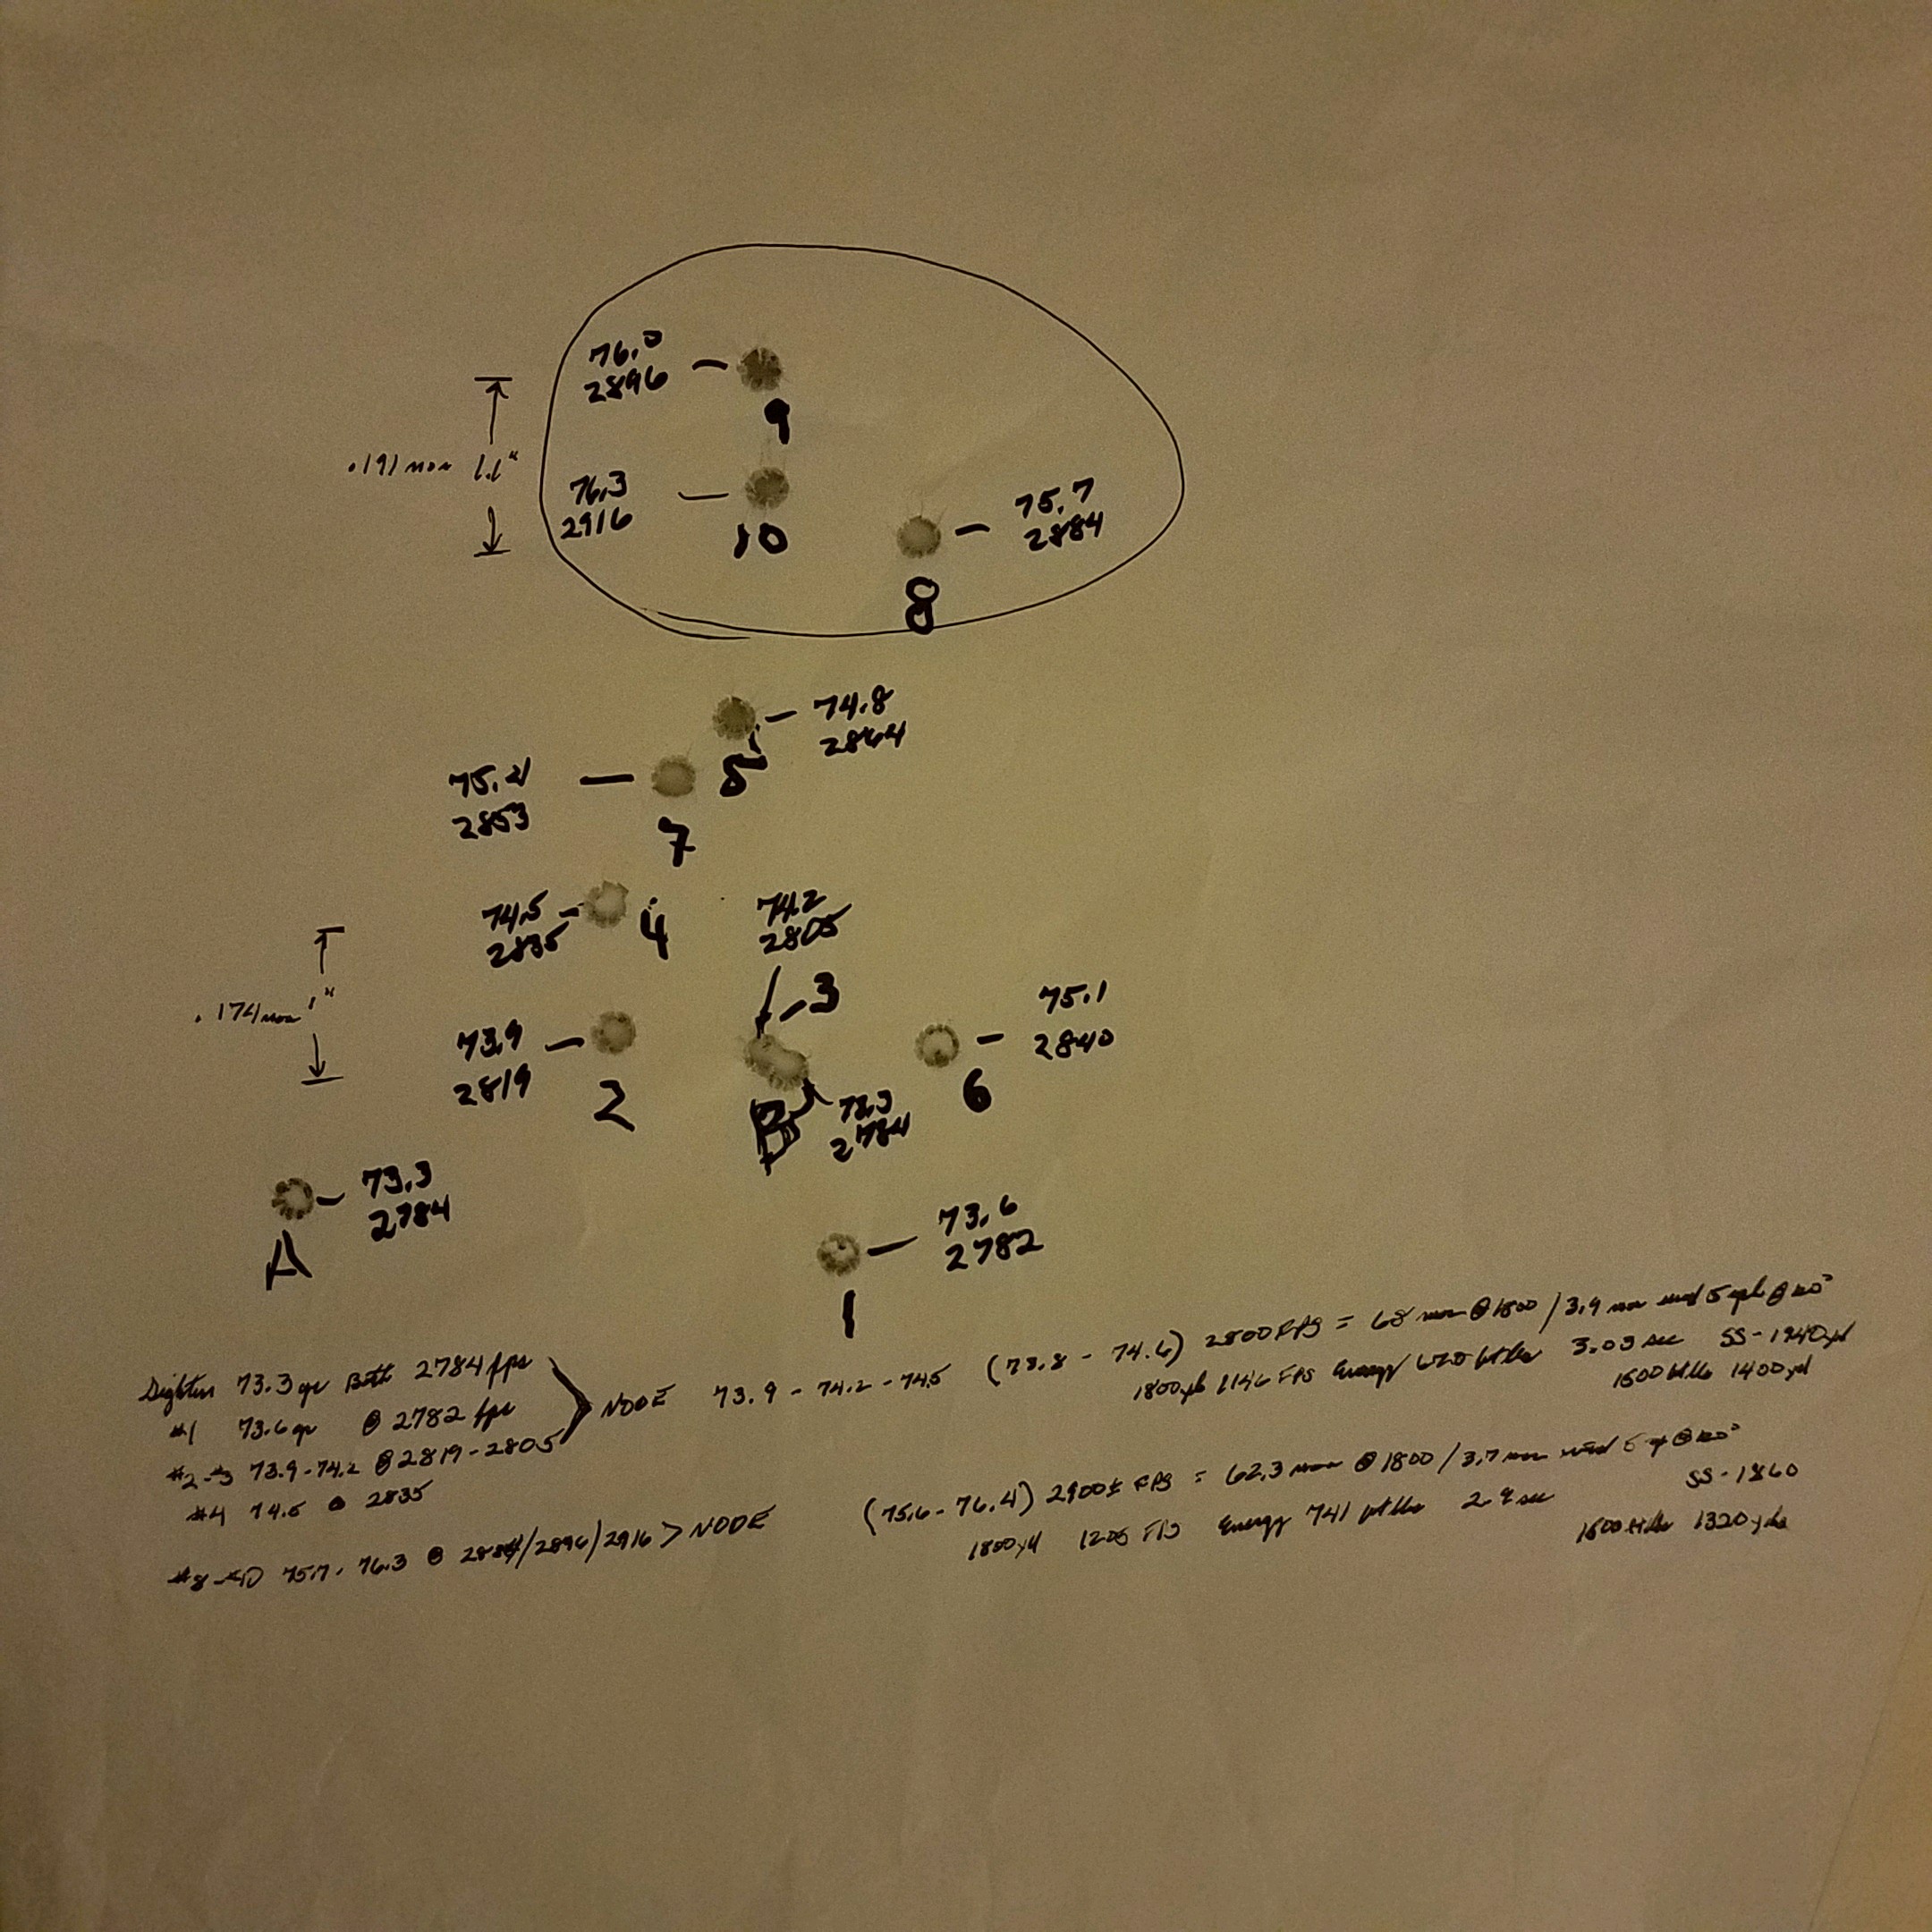 76.0
2896
9
.191 moa 1.1"
76.3
2916
10
75.7
2884
8
74.8
2864
5
75.4
2853
7
74.5
2835
4
74.2
2805
3
.174 moa 1"
73.9
2819
2
75.1
2840
6
B
73.3
2784
73.3
2784
A
73.6
2782
1
Sighters 73.3 gr Both 2784 fps
#1 73.6 gr @ 2782 fps
#2-#3 73.9-74.2 @ 2819-2805
#4 74.5 @ 2835
> NODE 73.9 - 74.2 - 74.5 (73.8 - 74.6) 2800 FPS = 68 moa @ 1800 / 3.9 moa wind 5 mph @
1800 yd 1146 FPS Energy ft lbs 3.03 sec SS-1940 yd
1500 ft lbs 1400 yd
#8-#10 75.7 - 76.3 @ 2884/2896/2916 > NODE (75.6 - 76.4) 2900± FPS = 62.3 moa @ 1800 / 3.7 moa wind 5 @
1800 yd 1205 FPS Energy 741 ft lbs 2.9 sec SS-1860
1500 ft lbs 1320 yds